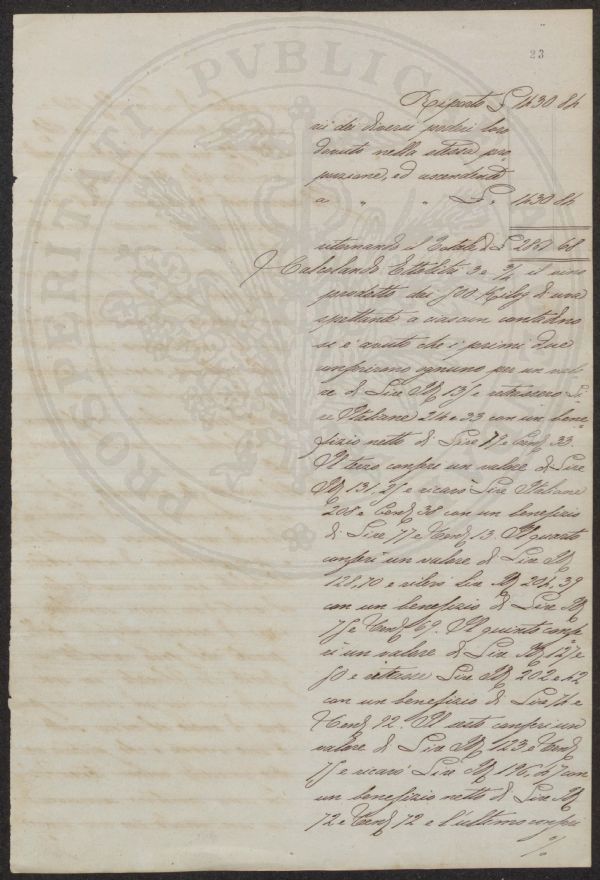 PROSPERITATI PVBLICAE
23
Riporto £ 1430 84
ni dei diversi poderi loro
dovute nella stessa pro
porzione, ed ascendenti
a " " £ " 1430 84
ritornando il Totale di £ 2861 68
Calcolando Ettolitri 3 e il vino
prodotto dai 500 Kilog di uva
spettante a ciascun contadino
si è avuto che i primi due
conferirono ognuno per un valo
re di Lire 135 e ritrassero Li
re Italiane 214 e 33 con un bene
fizio netto di Lire 79 e Cent 33.
Il terzo conferì un valore di Lire
131,25 e ricavò Lire Italiane
208 e Cent 38 con un beneficio
di Lire 77 e Cent 13. Il quarto
conferì un valore di Lire
128,70 e rilevò Lire 204,39
con un benefizio di Lire
75 e Cent 69. Il quinto confe
rì un valore di Lire 127 e
50 e ritrasse Lire 202 e 42
con un benefizio di Lire 74 e
Cent 92. Il sesto conferì un
valore di Lire 123 e Cent
75 e ricavò Lire 196,47 con
un benefizio netto di Lire
72 e Cent 72 e l'ultimo conferì
%